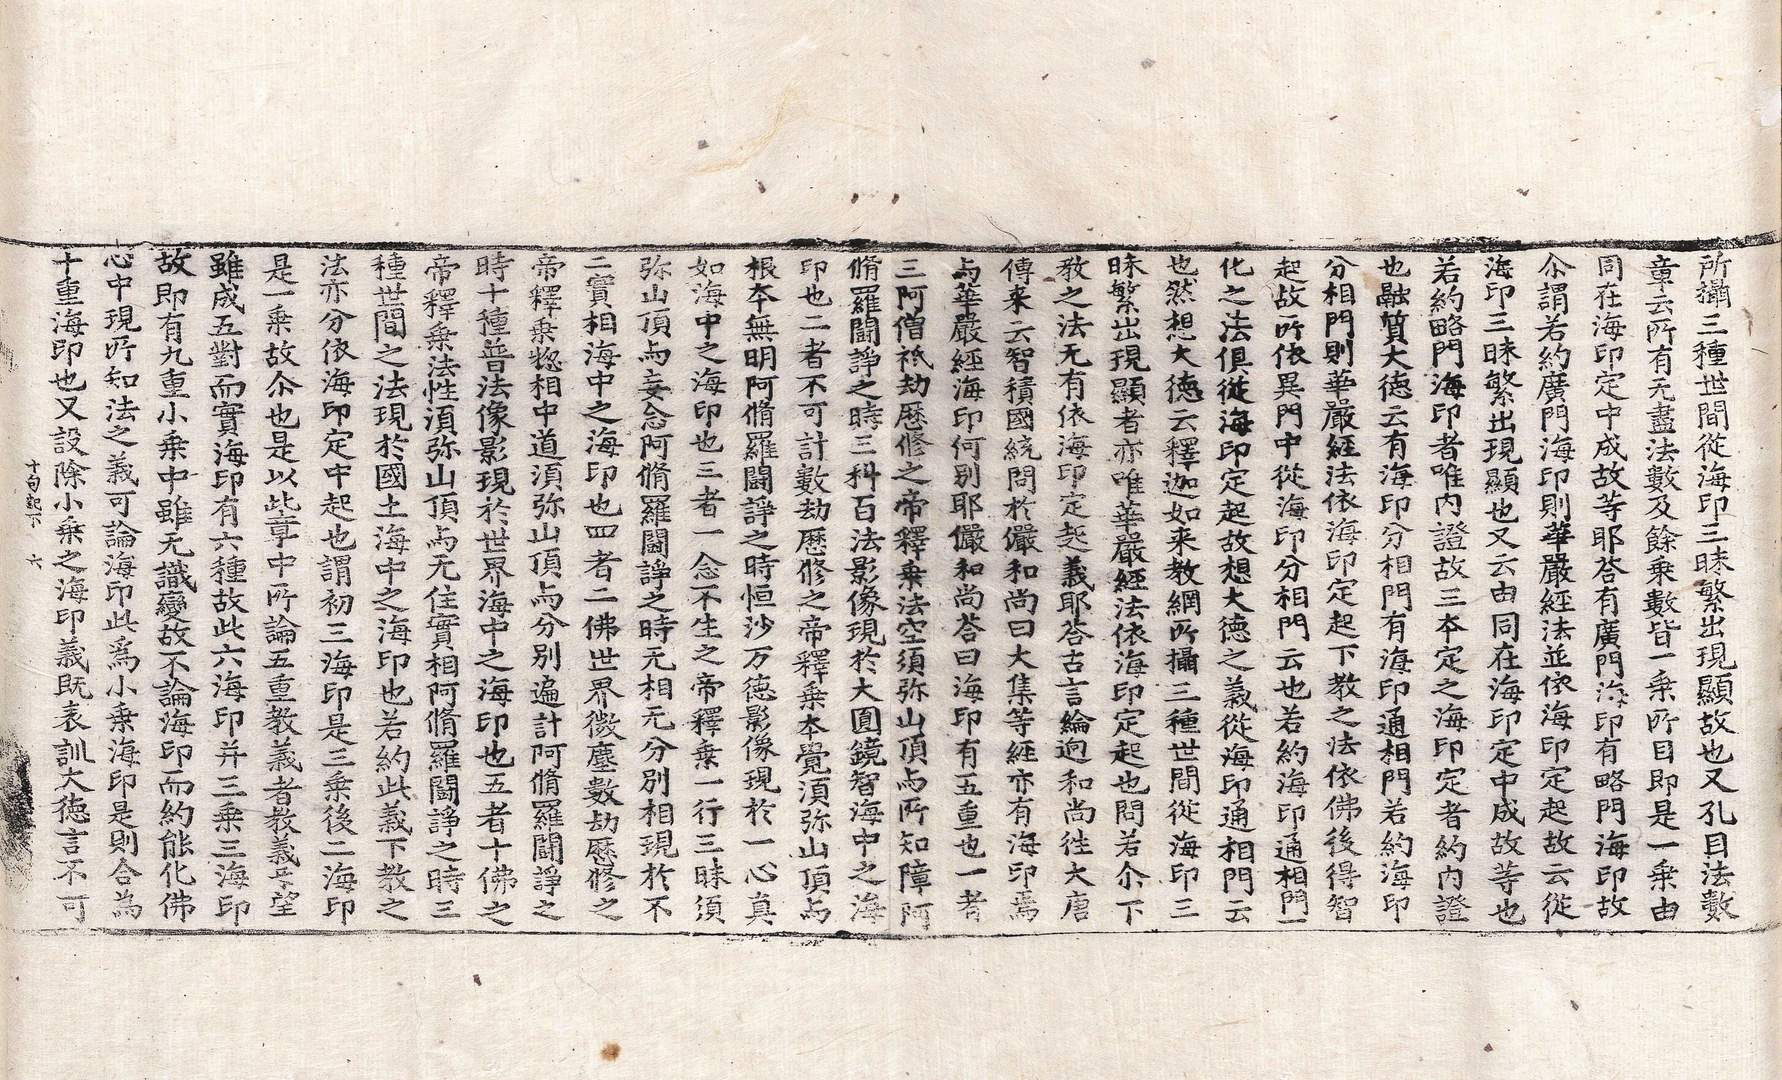 所攝三種世間從海印三昧繁出現顯故也又孔目法數
章云所有无盡法數及餘乘數皆一乘所目即是一乘由
同在海印定中成故等耶答有廣門海印有略門海印故
尒謂若約廣門海印則華嚴經法並依海印定起故云從
海印三昧繁出現顯也又云由同在海印定中成故等也
若約略門海印者唯內證故三本定之海印定者約內證
也融質大德云有海印分相門有海印通相門若約海印
分相門則華嚴經法依海印定起下教之法依佛後得智
起故所依異門中從海印分相門云也若約海印通相門一
化之法俱從海印定起故想大德之義從海印通相門云
也然想大德云釋迦如來教網所攝三種世間從海印三
昧繁出現顯者亦唯華嚴經法依海印定起也問若尒下
教之法无有依海印定起義耶答古言綸逈和尚徃大唐
傳來云智積國統問於儼和尚曰大集等經亦有海印焉
与華嚴經海印何別耶儼和尚答曰海印有五重也一者
三阿僧祇劫歷修之帝釋乘法空須弥山頂与所知障阿
脩羅鬪諍之時三科百法影像現於大圓鏡智海中之海
印也二者不可計數劫歷修之帝釋乘本覺須弥山頂与
根本無明阿脩羅鬪諍之時恒沙万德影像現於一心真
如海中之海印也三者一念不生之帝釋乘一行三昧須
弥山頂与妄念阿脩羅鬪諍之時无相无分別相現於不
二實相海中之海印也四者二佛世界微塵數劫歷修之
帝釋乘惣相中道須弥山頂与分別遍計阿脩羅鬪諍之
時十種普法像影現於世界海中之海印也五者十佛之
帝釋乘法性須弥山頂与无住實相阿脩羅鬪諍之時三
種世間之法現於國土海中之海印也若約此義下教之
法亦分依海印定中起也謂初三海印是三乘後二海印
是一乘故尒也是以此章中所論五重教義者教義与望
雖成五對而實海印有六種故此六海印并三乘三海印
故即有九重小乘中雖无識變故不論海印而約能化佛
心中現所知法之義可論海印此爲小乘海印是則合為
十重海印也又設除小乘之海印義既表訓大德言不可
十句 下 六